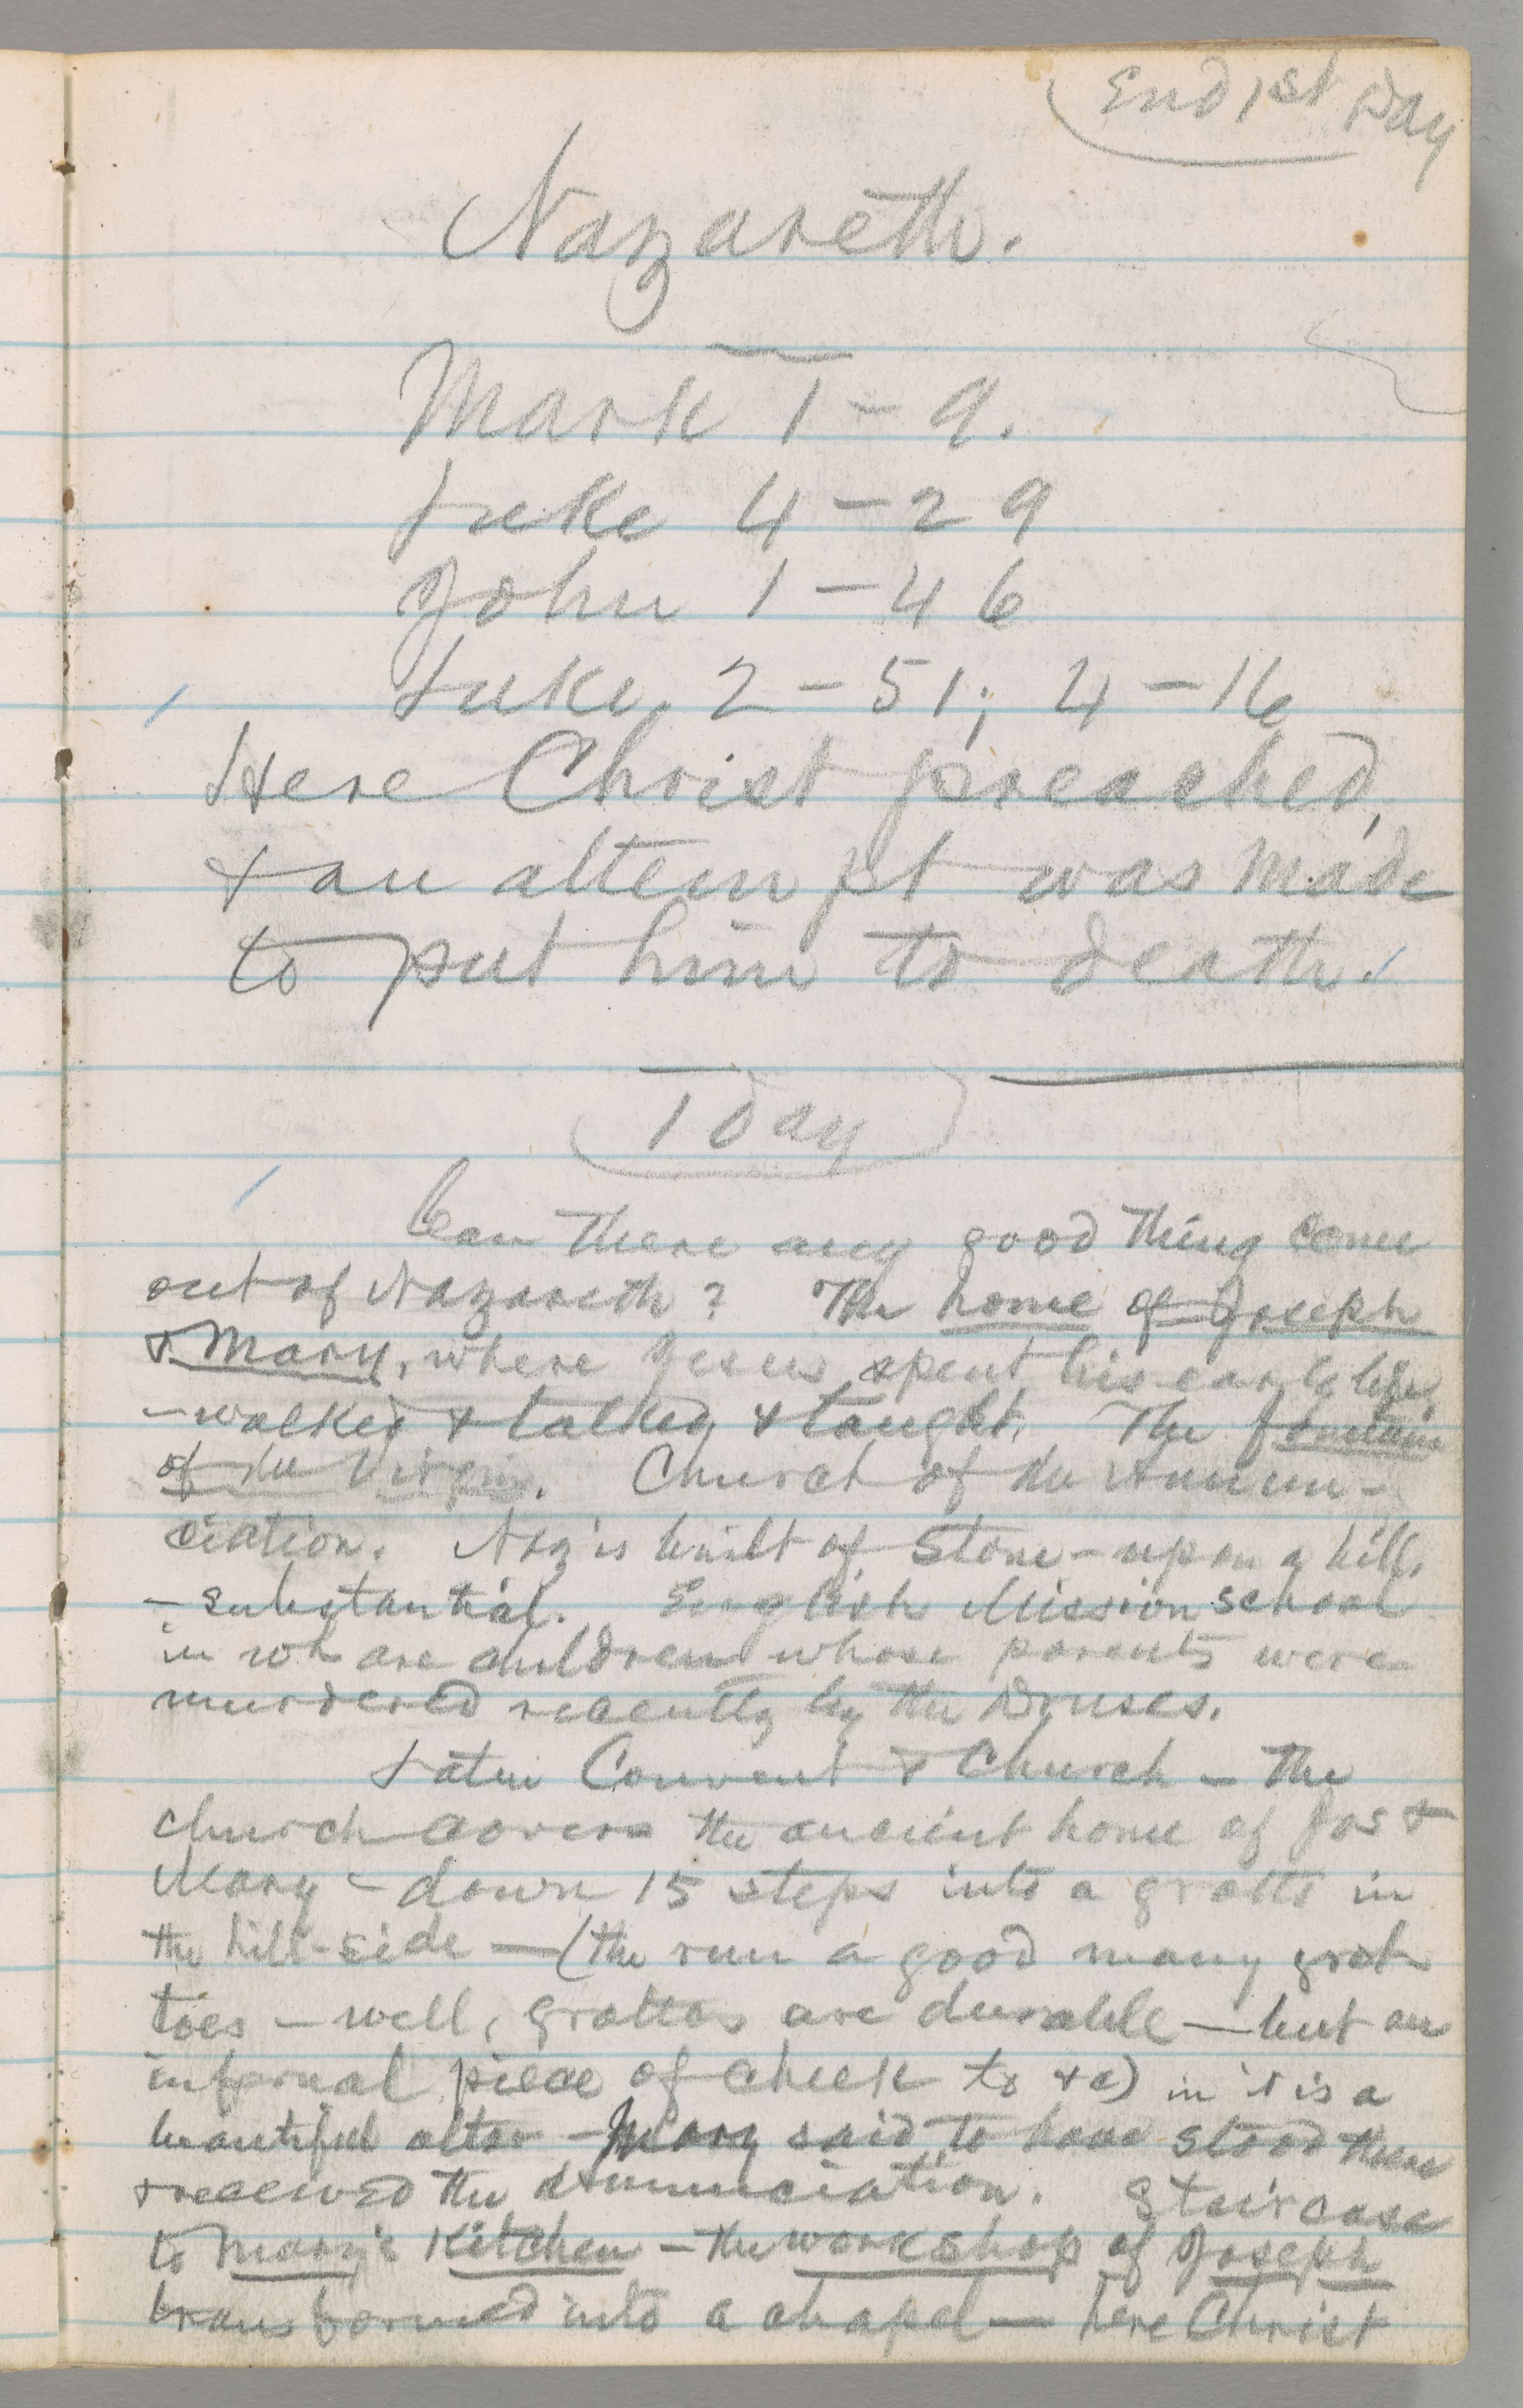 End 1st Day
Nazareth.
Mark 1-9.
Luke 4-29
John 1-46
Luke, 2-51; 4-16
Here Christ preached,
& an attempt was made
to put him to death.
1 Day
Can there any good thing come
out of Nazareth? The home of Joseph
& Mary, where Jesus spent his early life,
- walked & talked, & taught. The fountain
of the Virgin. Church of the Annun-
ciation. Naz is built of stone - upon a hill,
- substantial. English Mission school
in wh are children whose parents were
murdered recently by the Druses.
Latin Convent & Church - The
church covers the ancient home of Jos &
Mary - down 15 steps into a grotto in
the hill-side — (the run a good many grot
toes - well, grottos are durable — but an
infernal piece of cheek to &c) in it is a
beautiful altar - Mary said to have stood there
& received the Annunciation. Staircase
to Mary's Kitchen - the workshop of Joseph
transformed into a chapel — here Christ